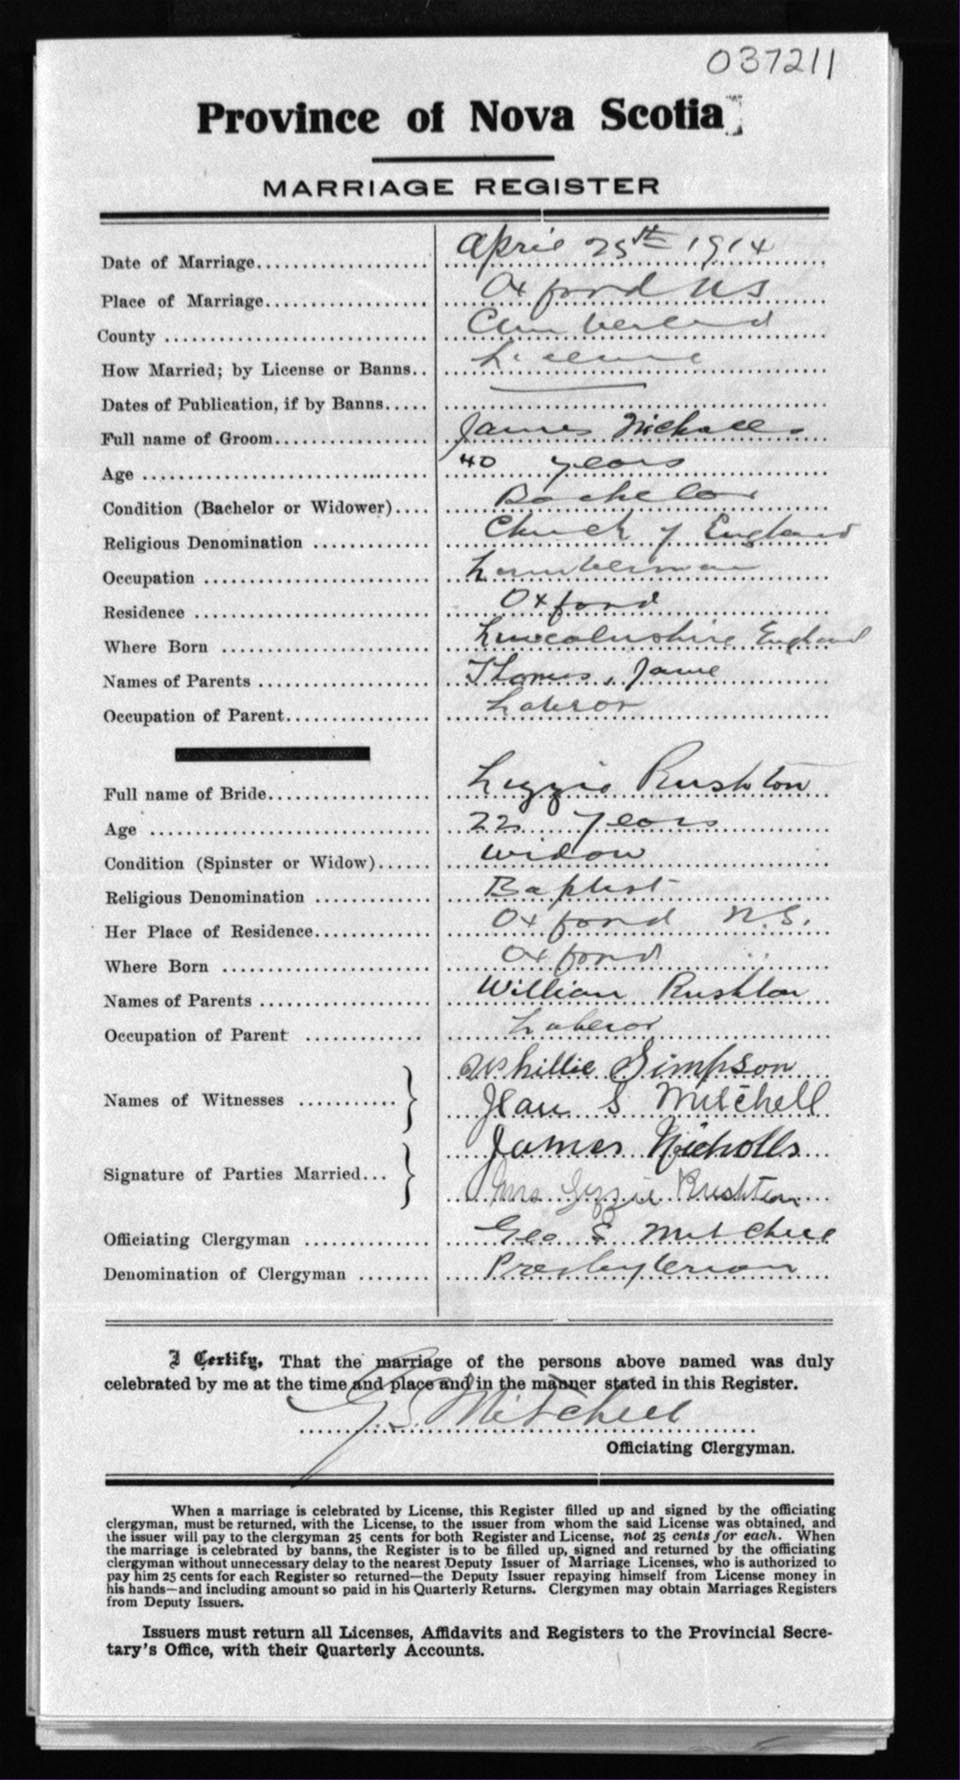 037211
Province of Nova Scotia
MARRIAGE REGISTER
Date of Marriage.................... April 25th 1914
Place of Marriage................... Oxford NS
County ............................. Cumberland
How Married; by License or Banns.. License
Dates of Publication, if by Banns..... ———
Full name of Groom.................. James Nicholls
Age ................................ 40 years
Condition (Bachelor or Widower).... Bachelor
Religious Denomination ............. Church of England
Occupation ......................... Lumberman
Residence .......................... Oxford
Where Born ......................... Lincolnshire England
Names of Parents ................... Thomas, Jane
Occupation of Parent................ Laberor
Full name of Bride.................. Lizzie Rushton
Age ................................ 22 years
Condition (Spinster or Widow)...... Widow
Religious Denomination ............. Baptist
Her Place of Residence.............. Oxford N.S.
Where Born ......................... Oxford
Names of Parents ................... William Rushton
Occupation of Parent ............... Laberor
Names of Witnesses ........... } Whillie Simpson
Jean S Mitchell
Signature of Parties Married... } James Nicholls
Mrs Lizzie Rushton
Officiating Clergyman .............. Geo S Mitchell
Denomination of Clergyman ........ Presbyterian
I Certify, That the marriage of the persons above named was duly
celebrated by me at the time and place and in the manner stated in this Register.
G.S. Mitchell
Officiating Clergyman.
When a marriage is celebrated by License, this Register filled up and signed by the officiating
clergyman, must be returned, with the License, to the issuer from whom the said License was obtained, and
the issuer will pay to the clergyman 25 cents for both Register and License, not 25 cents for each. When
the marriage is celebrated by banns, the Register is to be filled up, signed and returned by the officiating
clergyman without unnecessary delay to the nearest Deputy Issuer of Marriage Licenses, who is authorized to
pay him 25 cents for each Register so returned—the Deputy Issuer repaying himself from License money in
his hands—and including amount so paid in his Quarterly Returns. Clergymen may obtain Marriages Registers
from Deputy Issuers.
Issuers must return all Licenses, Affidavits and Registers to the Provincial Secre-
tary's Office, with their Quarterly Accounts.